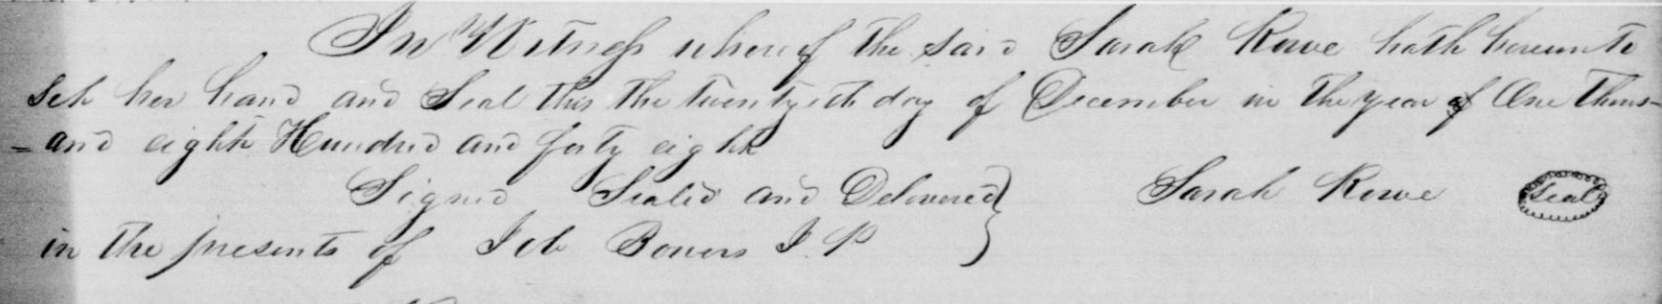 In Witness whereof the said Sarah Rowe hath hereunto
Set her hand and Seal this the twentyeth day of December in the year of One Thous-
-and eight Hundred and forty eight
Signed Sealed and Delivered } Sarah Rowe Seal
in the presents of Job Bowers J. P